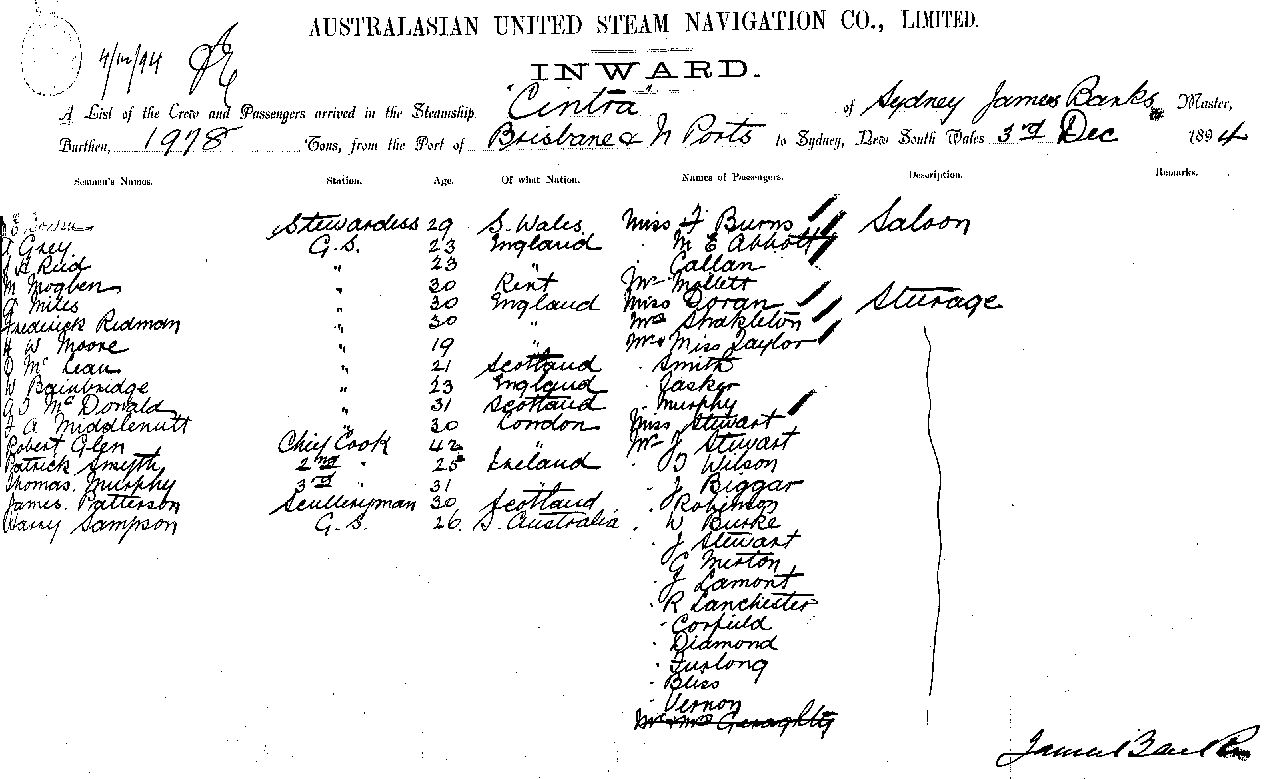 AUSTRALASIAN UNITED STEAM NAVIGATION CO., LIMITED.
4/12/94
INWARD.
A List of the Crew and Passengers arrived in the Steamship "Cintra" of Sydney James Banks, Master,
Burthen, 1978 Tons, from the Port of Brisbane & N Ports to Sydney, New South Wales 3rd Dec 1894
Seamen's Names. Station. Age. Of what Nation. Names of Passengers. Description. Remarks.
Stewardess 29 S. Wales Miss F Burns Saloon
Grey G.S. 23 England " M E Abbott
H Reid " 23 " " Callan
M Mogben " 30 Kent Mr Mollett
G Miles " 30 England Miss Doran Steerage
Frederick Ridman " 30 " Mrs Shakleton
W Moore " 19 " Mrs Miss Taylor
Mc Lean " 21 Scotland " Smith
W Bainbridge " 23 England " Tasker
Mc Donald " 31 Scotland " Murphy
A Middlenutt " 30 London Miss Stewart
Robert Glen Chief Cook 42 " Mr J Stewart
Patrick Smyth 2nd " 25 Ireland " Wilson
Thomas Murphy 3rd " 31 " " J Biggar
James Patterson Sculleryman 30 Scotland " Robinson
Harry Sampson G.S. 26 S. Australia " W Burke
" J Stewart
" G Merton
" J Lamont
" R Lanchester
" Corfield
" Diamond
" Furlong
" Bliss
" Vernon
Mr & Mrs Geraghty
James Banks